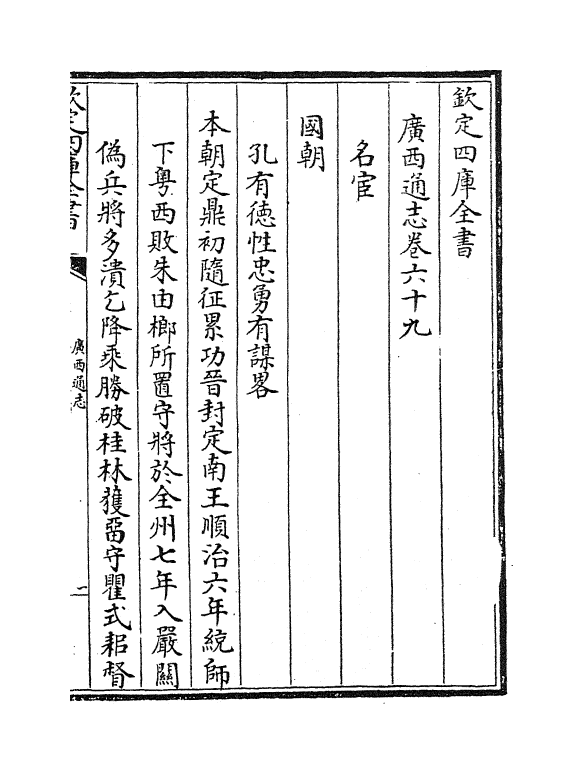 欽定四庫全書
廣西通志卷六十九
名宦
國朝
孔有徳性忠勇有謀畧
本朝定鼎初隨征累功晉封定南王順治六年統師
下粤西敗朱由榔所置守將於全州七年入嚴關
偽兵將多潰乞降乘勝破桂林獲畱守瞿式耜督
欽定四庫全書
廣西通志